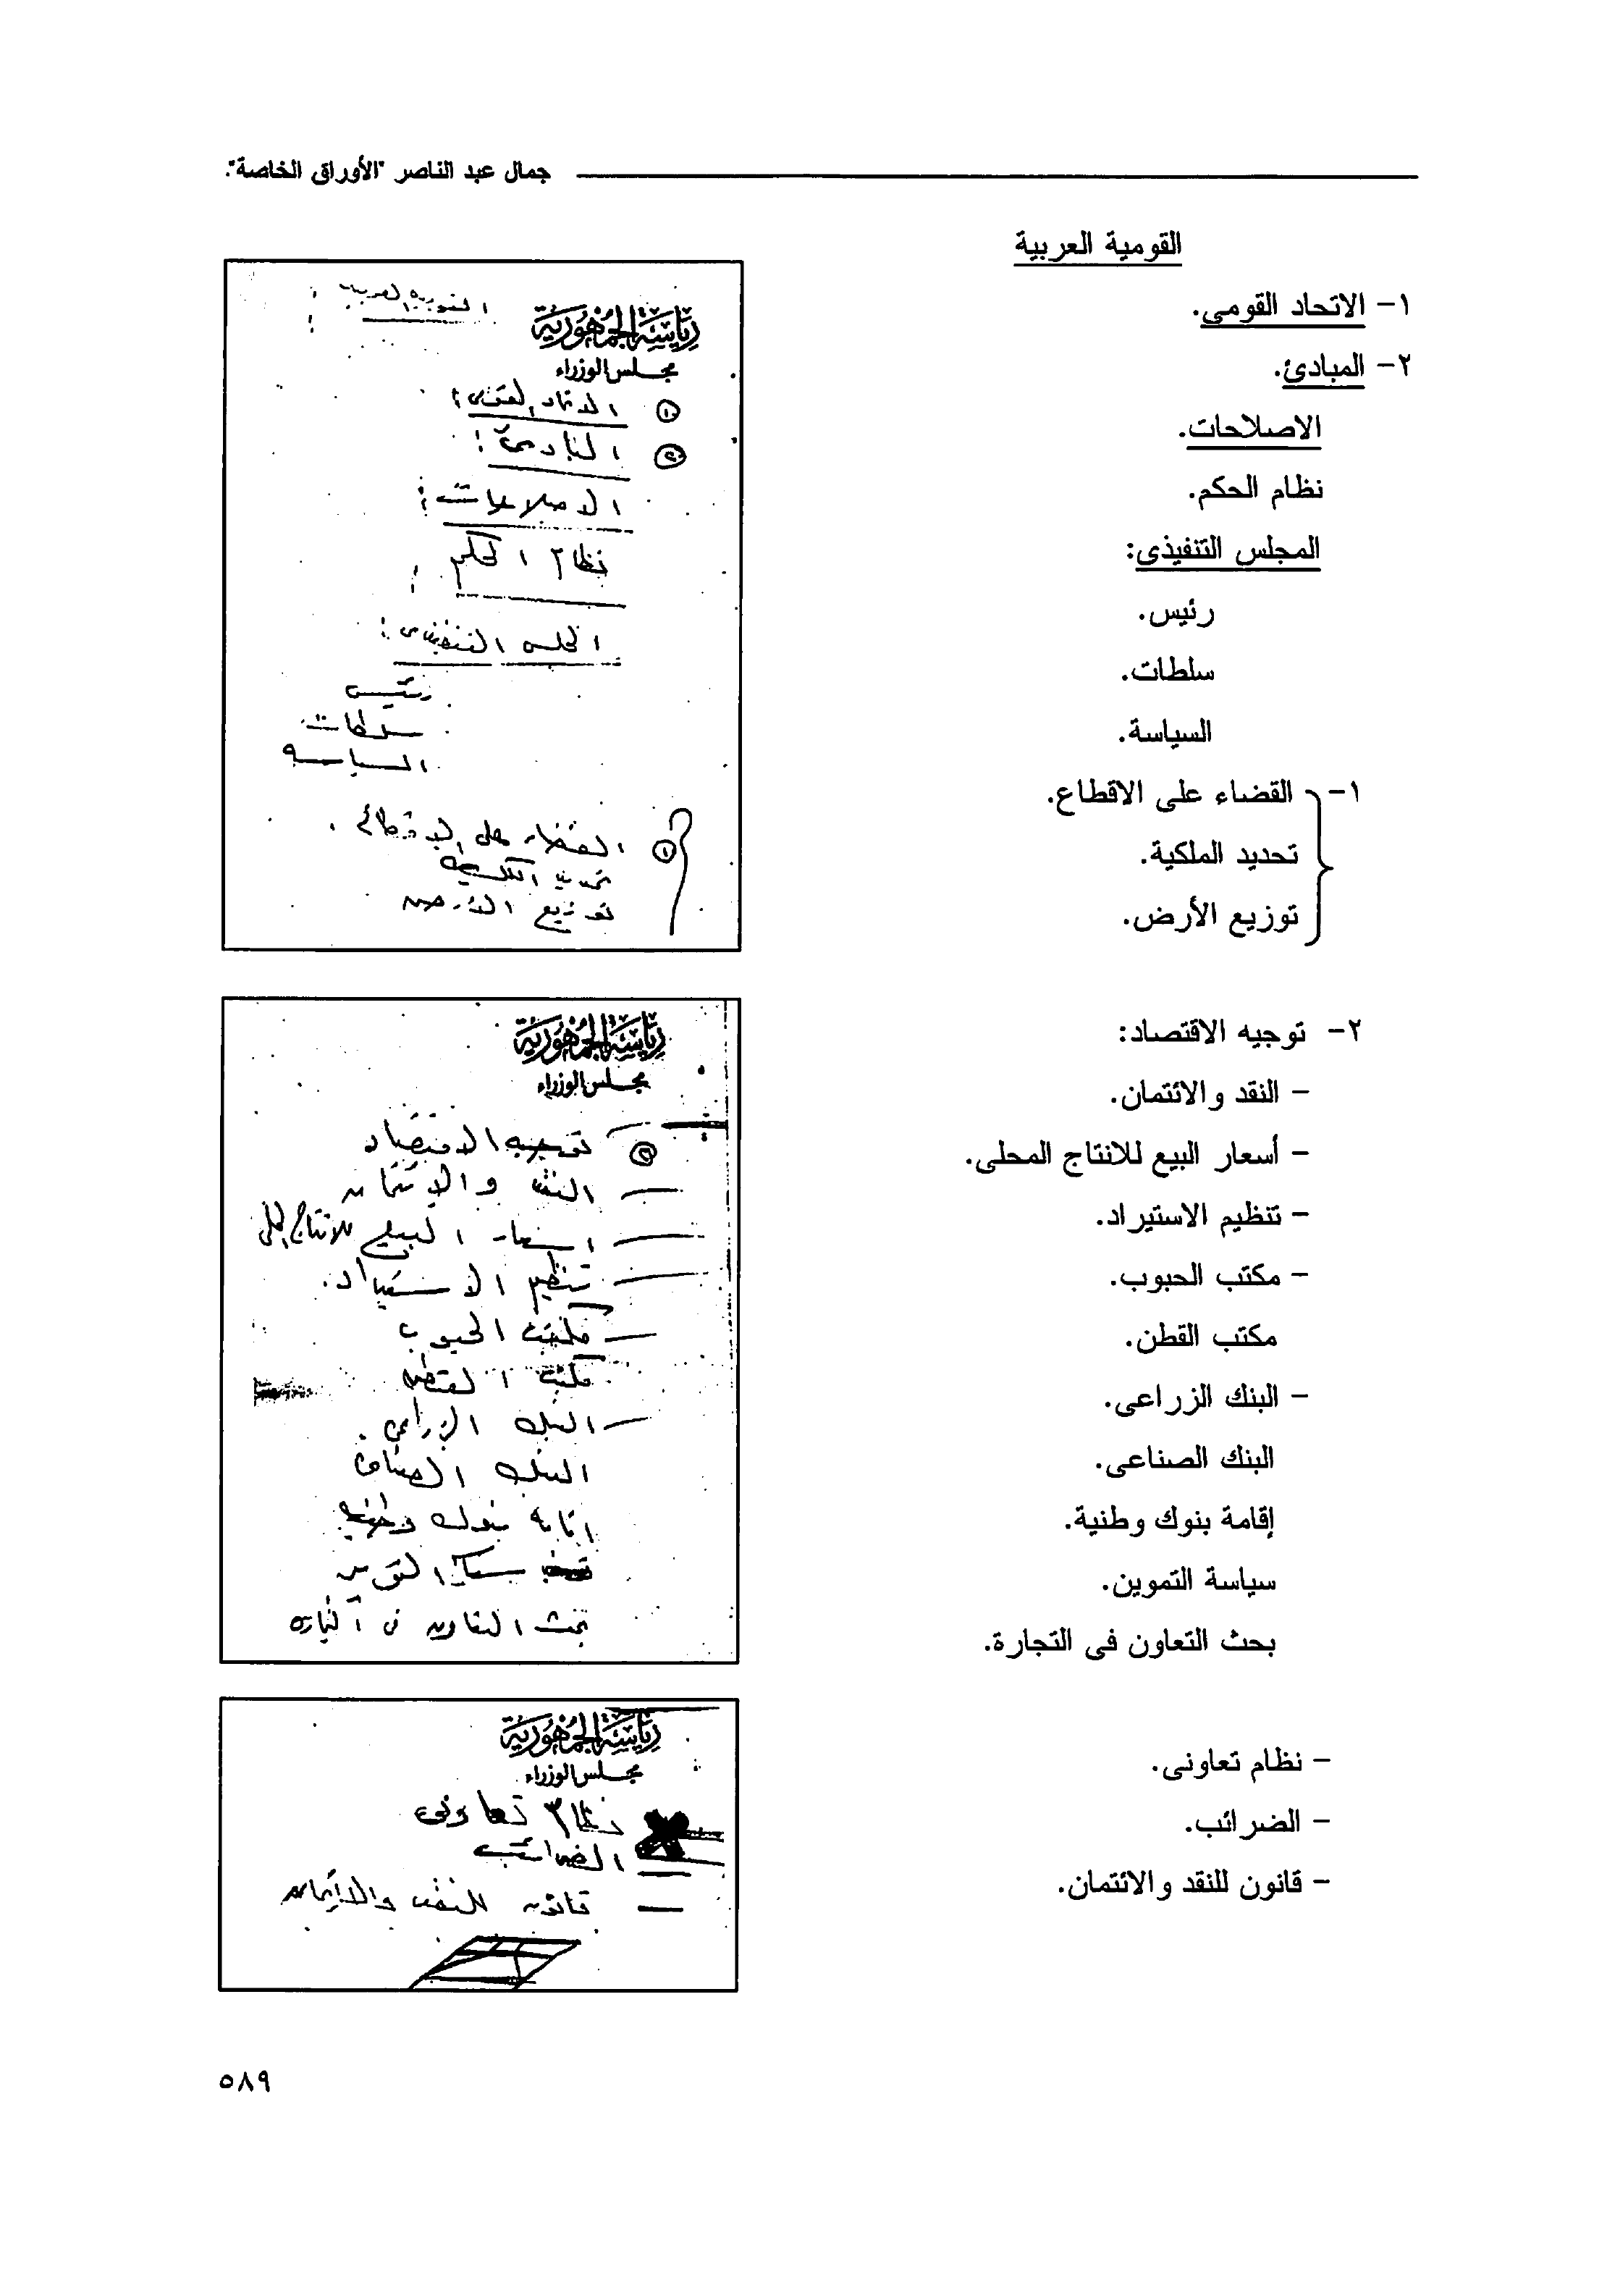 جمال عبد الناصر "الأوراق الخاصة".
القومية العربية
١- الاتحاد القومى.
٢- المبادئ.
الاصلاحات.
نظام الحكم.
المجلس التنفيذى:
رئيس.
سلطات.
السياسة.
١- القضاء على الاقطاع.
تحديد الملكية.
توزيع الأرض.
رياسة الجمهورية
مجلس الوزراء
القومية العربية
١ الاتحاد القومى:
٢ المبادئ:
الاصلاحات:
نظام الحكم:
المجلس التنفيذى:
رئيس
سلطات
السياسة
١ القضاء على الاقطاع.
تحديد الملكية
توزيع الأرض
٢- توجيه الاقتصاد:
- النقد والائتمان.
- أسعار البيع للانتاج المحلى.
- تنظيم الاستيراد.
- مكتب الحبوب.
مكتب القطن.
- البنك الزراعى.
البنك الصناعى.
إقامة بنوك وطنية.
سياسة التموين.
بحث التعاون فى التجارة.
رياسة الجمهورية
مجلس الوزراء
٢ توجيه الاقتصاد
— النقد والائتمان
— اسعار البيع للانتاج المحلى
— تنظيم الاستيراد.
— مكتب الحبوب
مكتب القطن
— البنك الزراعى.
البنك الصناعى
اقامة بنوك وطنية
سياسة التموين
بحث التعاون فى التجارة
- نظام تعاونى.
- الضرائب.
- قانون للنقد والائتمان.
رياسة الجمهورية
مجلس الوزراء
نظام تعاونى
الضرائب
— قانون للنقد والائتمان
٥٨٩